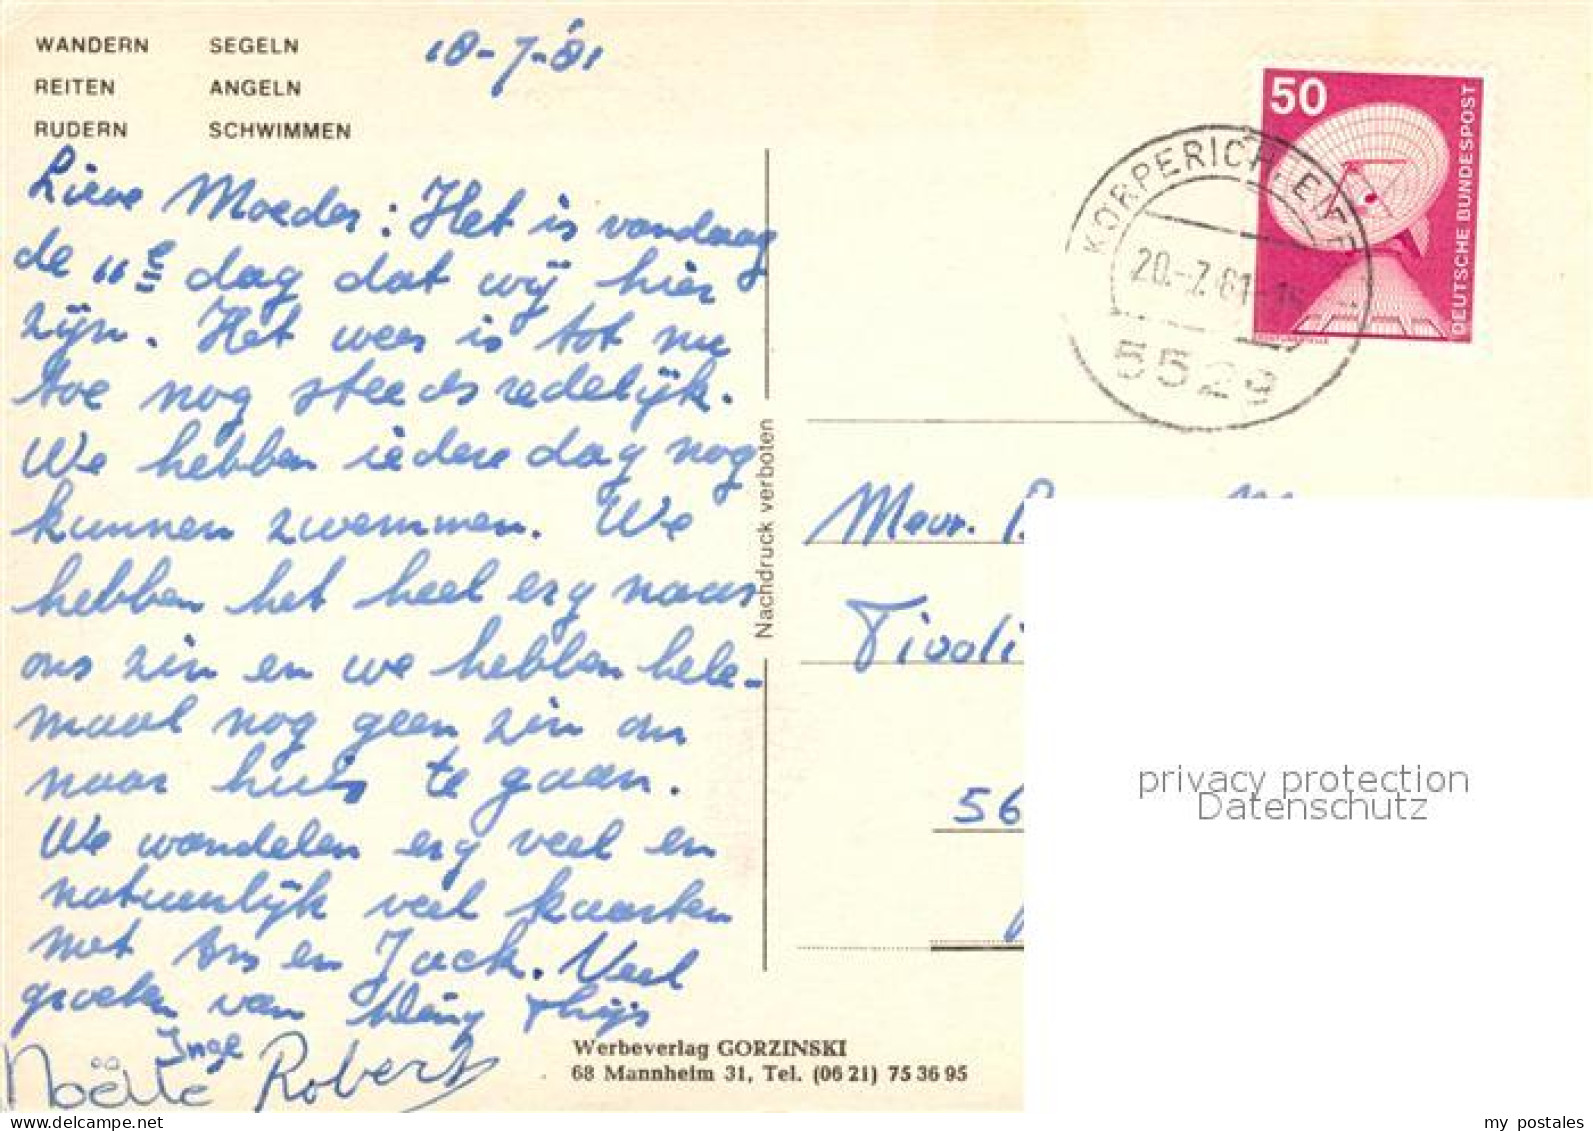 WANDERN SEGELN
REITEN ANGELN
RUDERN SCHWIMMEN
18-7-81
Lieve Moeder: Het is vandaag
de 11e dag dat wij hier
zijn. Het weer is tot nu
toe nog steeds redelijk.
We hebben iedere dag nog
kunnen zwemmen. We
hebben het heel erg naar
ons zin en we hebben hele-
maal nog geen zin om
naar huis te gaan.
We wandelen erg veel en
natuurlijk veel kaarten
met Ans en Jack. Veel
groeten van Thijs
Inge
Noëlle Robert
Nachdruck verboten
Werbeverlag GORZINSKI
68 Mannheim 31, Tel. (06 21) 75 36 95
50
DEUTSCHE BUNDESPOST
KÖRPERICH, EIFEL
20.-7.81-
5529
Mevr.
Tivoli
56
privacy protection
Datenschutz
my postales
www.delcampe.net